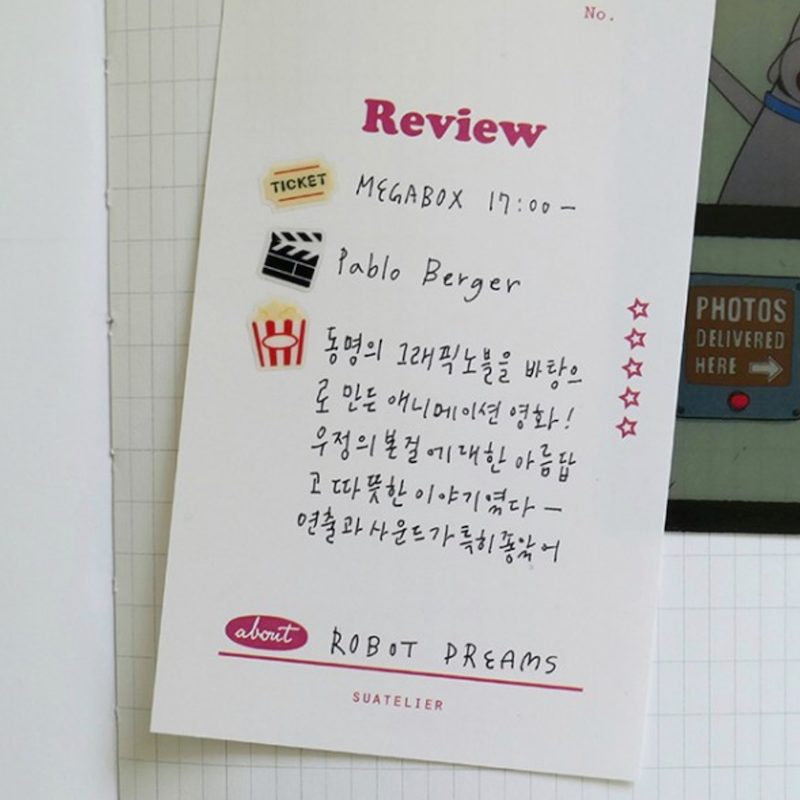 No.
Review
TICKET
MEGABOX 17:00 —
Pablo Berger
동명의 그래픽노블을 바탕으
로 만든 애니메이션 영화!
우정의 본질에 대한 아름답
고 따뜻한 이야기였다 —
연출과 사운드가 특히 좋았어
about
ROBOT DREAMS
SUATELIER
PHOTOS
DELIVERED
HERE